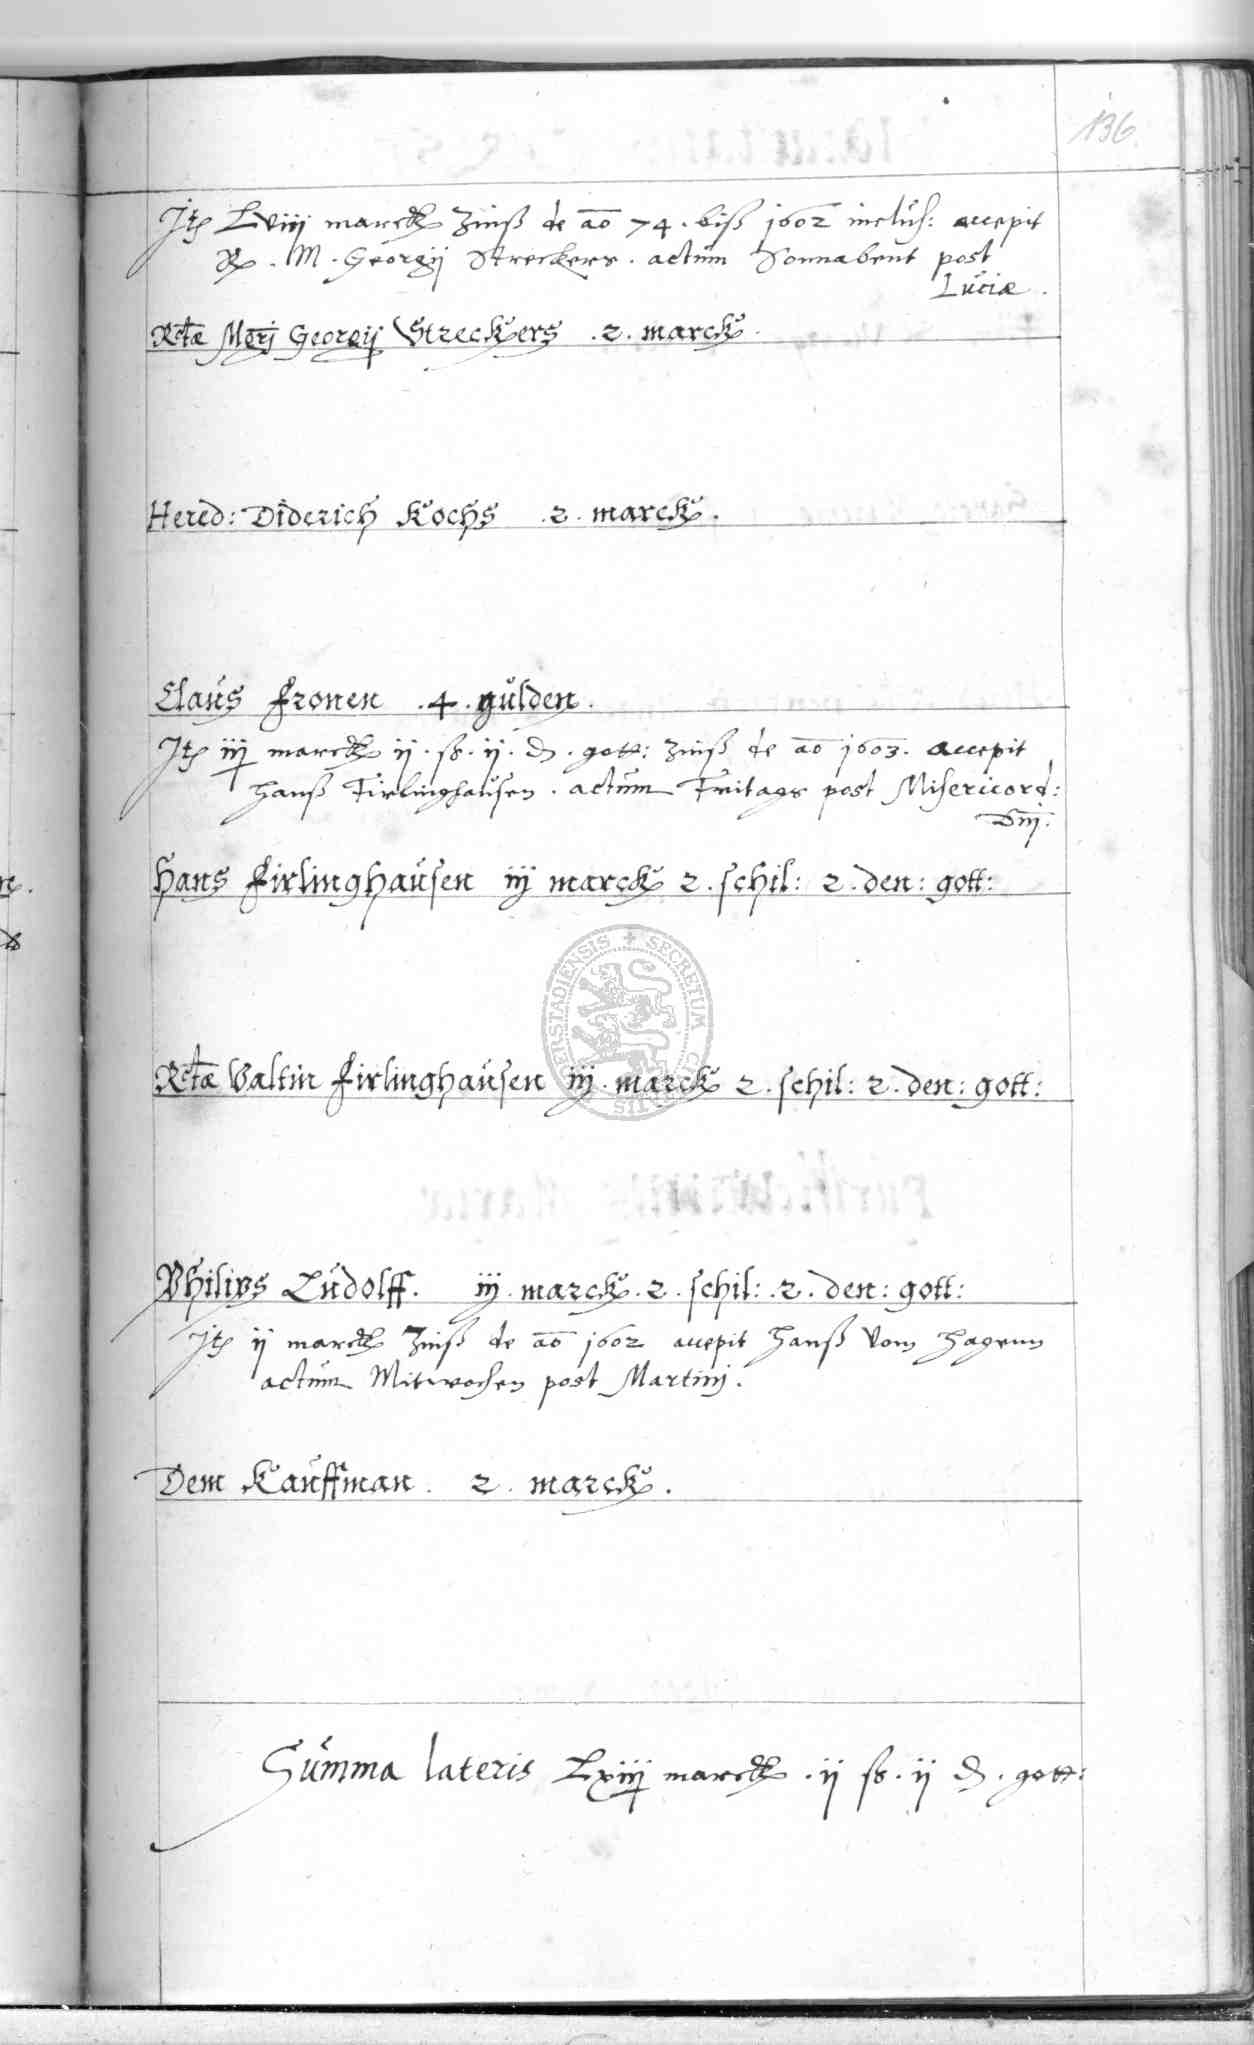 136
Jtem Lviij marck Zinß de ao 74. biß 1602 inclus: accepit
R. M. Georgij Streckers. actum Sonnabent post
Luciæ.
Rctæ Mgrj Georgij Streckers .2. marck.
Hered: Diderich Kochs .2. marck.
Claus Fronen .4. gulden.
Jtem iij marck ij. ß. ij. d. gott: Zinß de ao 1603. accepit
Hanß Firlinghausen. actum Fritags post Misericord:
Dnj.
Hans Firlinghausen iij marck 2. schil: 2. den: gott:
SECRETUM
Rctæ Valtin Firlinghausen iij. marck 2. schil: 2. den: gott:
Philips Ludolff. iij. marck. 2. schil: .2. den: gott:
Jtem ij marck Zinß de ao 1602 accepit Hanß Vom Hagenn
actum Mitwochen post Martinj.
Dem Kauffman. 2. marck.
Summa lateris Lxiij marck .ij ß. ij d. gott: